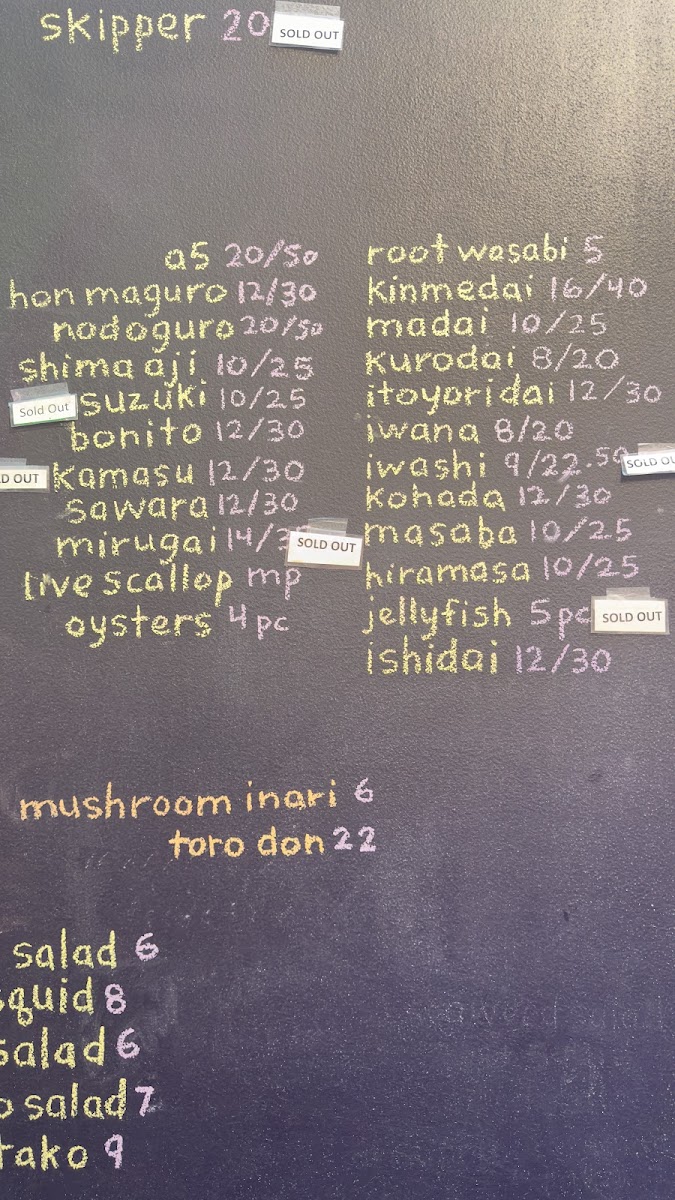 skipper 20 SOLD OUT
a5 20/50
hon maguro 12/30
nodoguro 20/50
shima aji 10/25
Sold Out suzuki 10/25
bonito 12/30
LD OUT kamasu 12/30
sawara 12/30
mirugai 14/3 SOLD OUT
live scallop mp
oysters 4 pc
root wasabi 5
kinmedai 16/40
madai 10/25
kurodai 8/20
itoyori dai 12/30
iwana 8/20
iwashi 9/22.50 SOLD OU
kohada 12/30
masaba 10/25
hiramasa 10/25
jellyfish 5 pc SOLD OUT
ishidai 12/30
mushroom inari 6
toro don 22
salad 6
squid 8
salad 6
o salad 7
tako 9